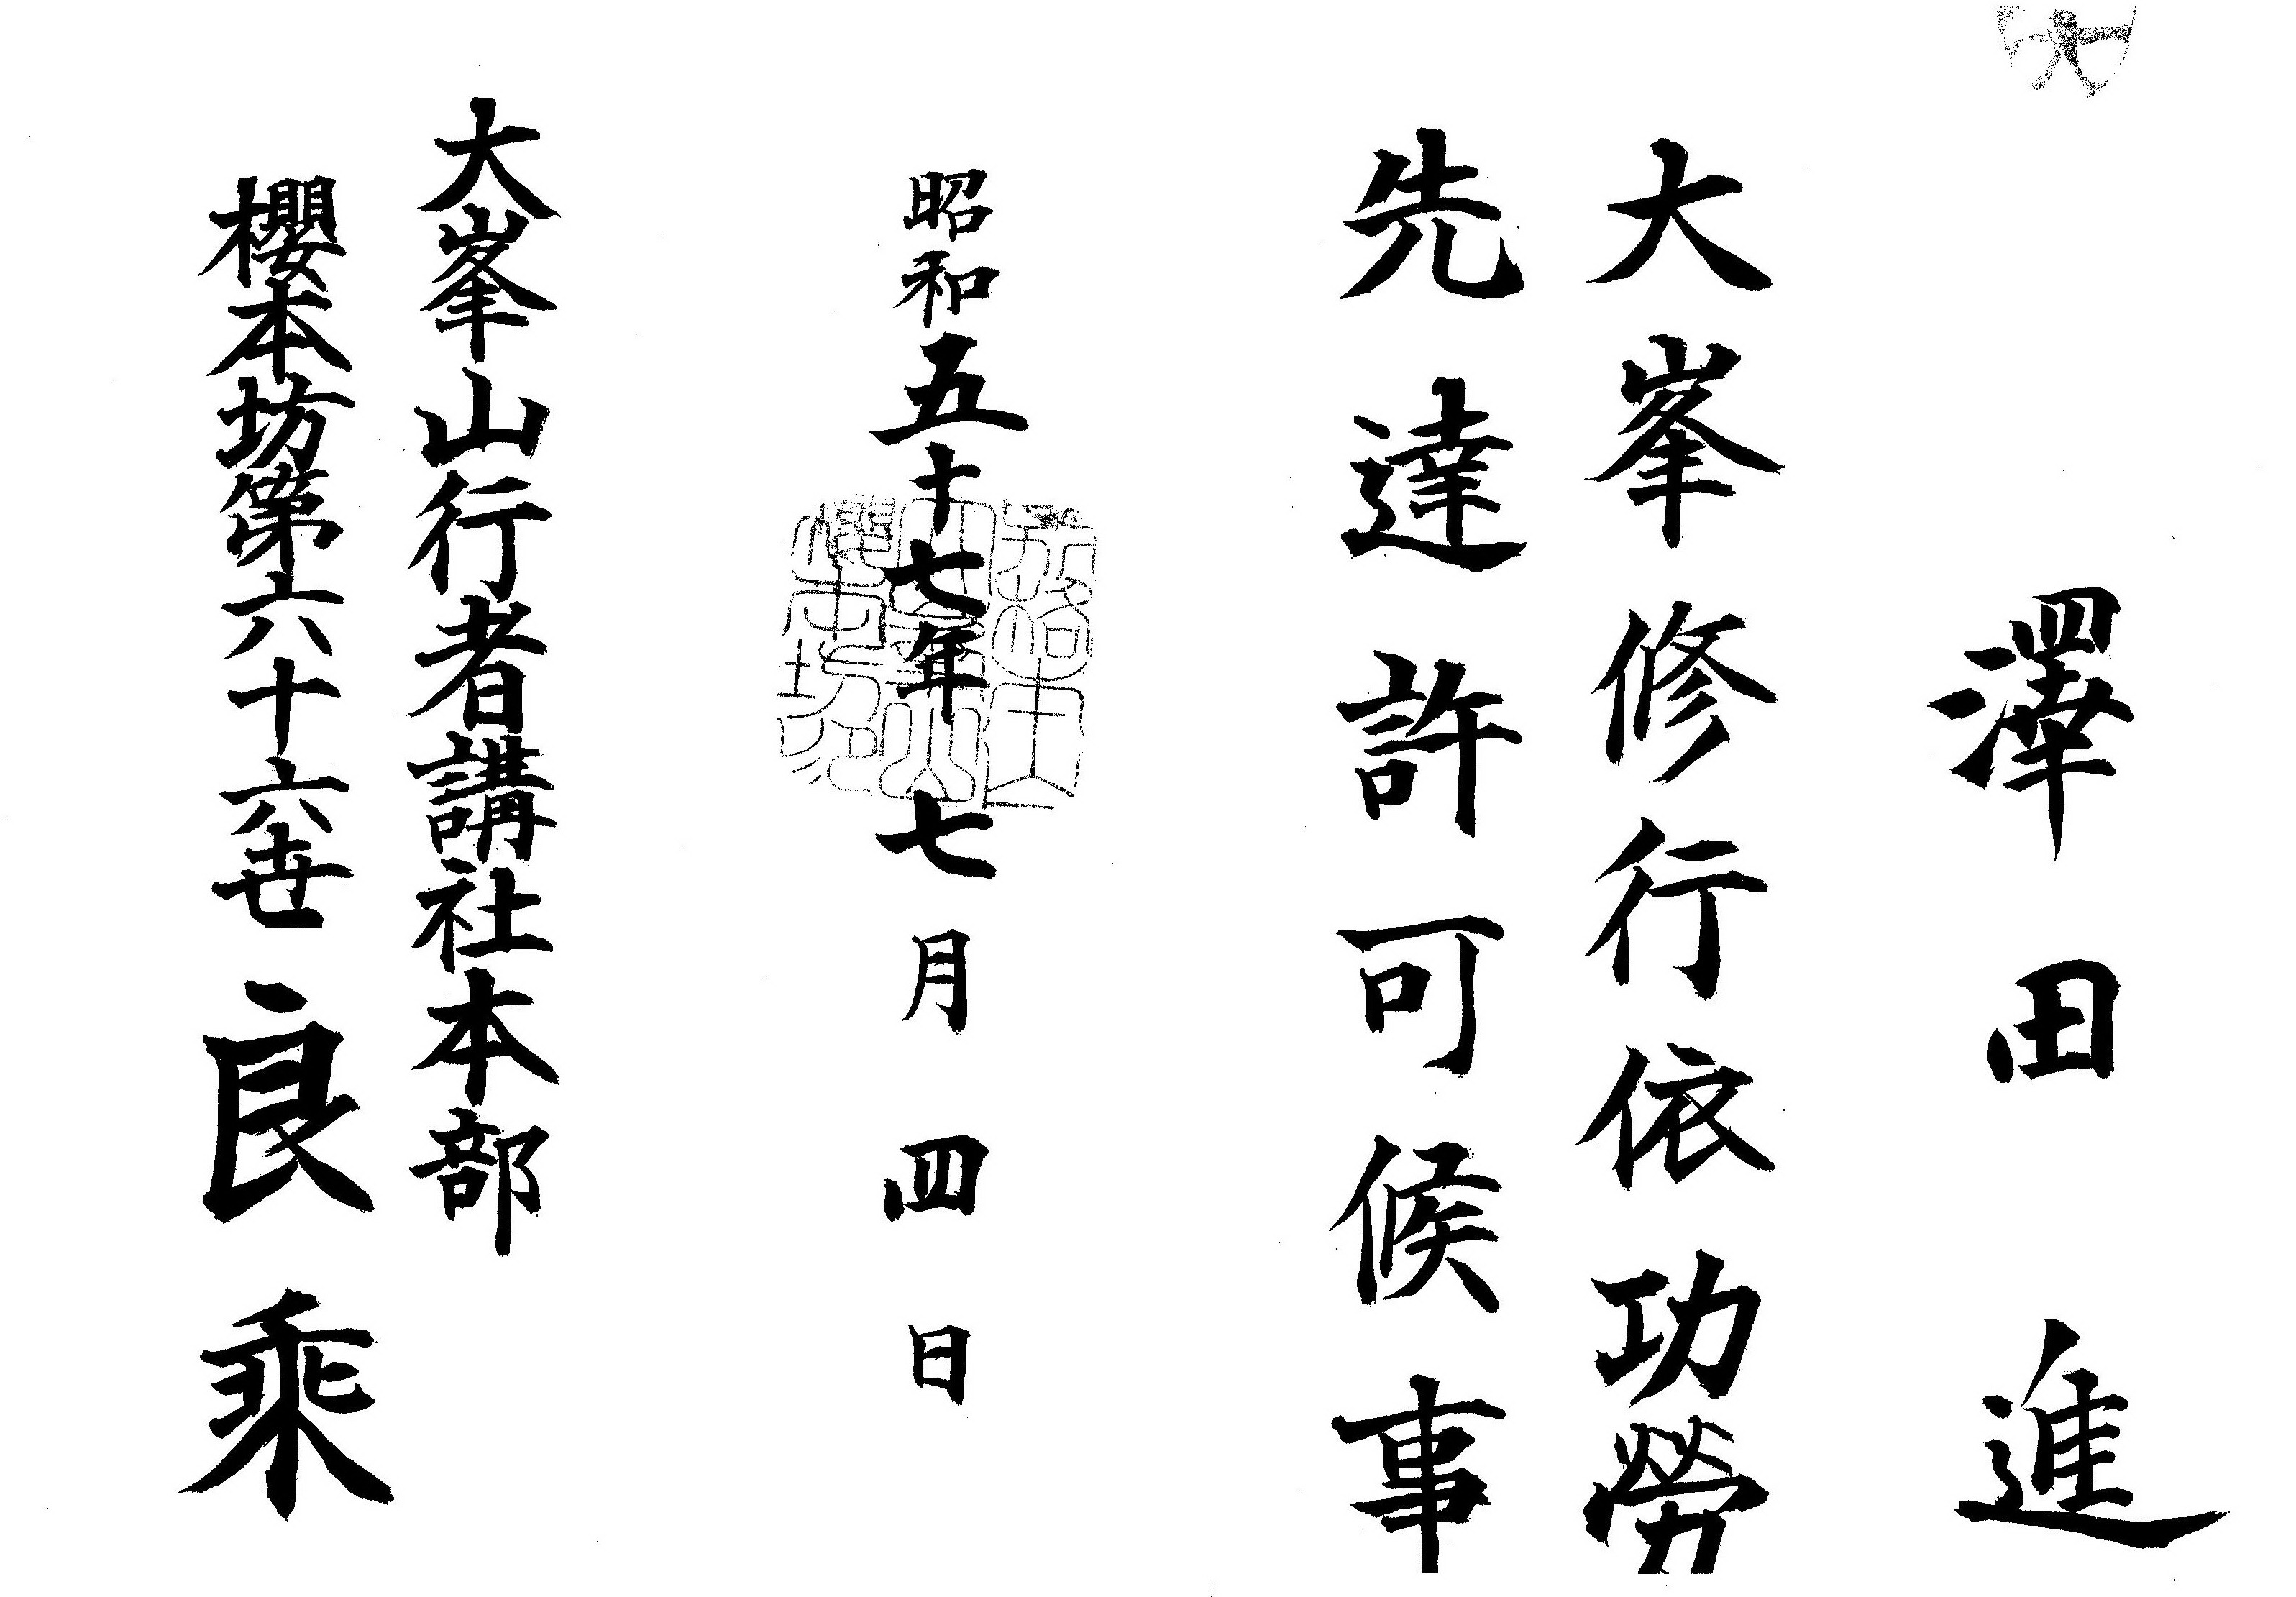 澤田進
大峯修行依功勞
先達許可候事
昭和五十七年七月四日
大峯山行者講社本部
櫻本坊第六十六世良乘